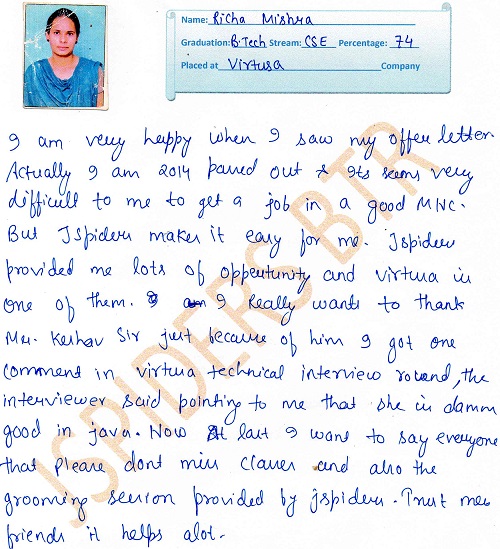 Name: Richa Mishra
Graduation: B.Tech Stream: CSE Percentage: 74
Placed at Virtusa Company
I am very happy when I saw my offer letter
Actually I am 2014 passed out & its seems very
difficult to me to get a job in a good MNC.
But Jspiders makes it easy for me. Jspiders
provided me lots of oppertunity and virtusa is
one of them. I really wants to thank
Mr. Keshav Sir just because of him I got one
comment in virtusa technical interview round, the
interviewer said pointing to me that she is damm
good in java. Now At last I want to say everyone
that please dont miss classes and also the
grooming session provided by jspiders. Trust me
friends it helps alot.
JSPIDERS BTR